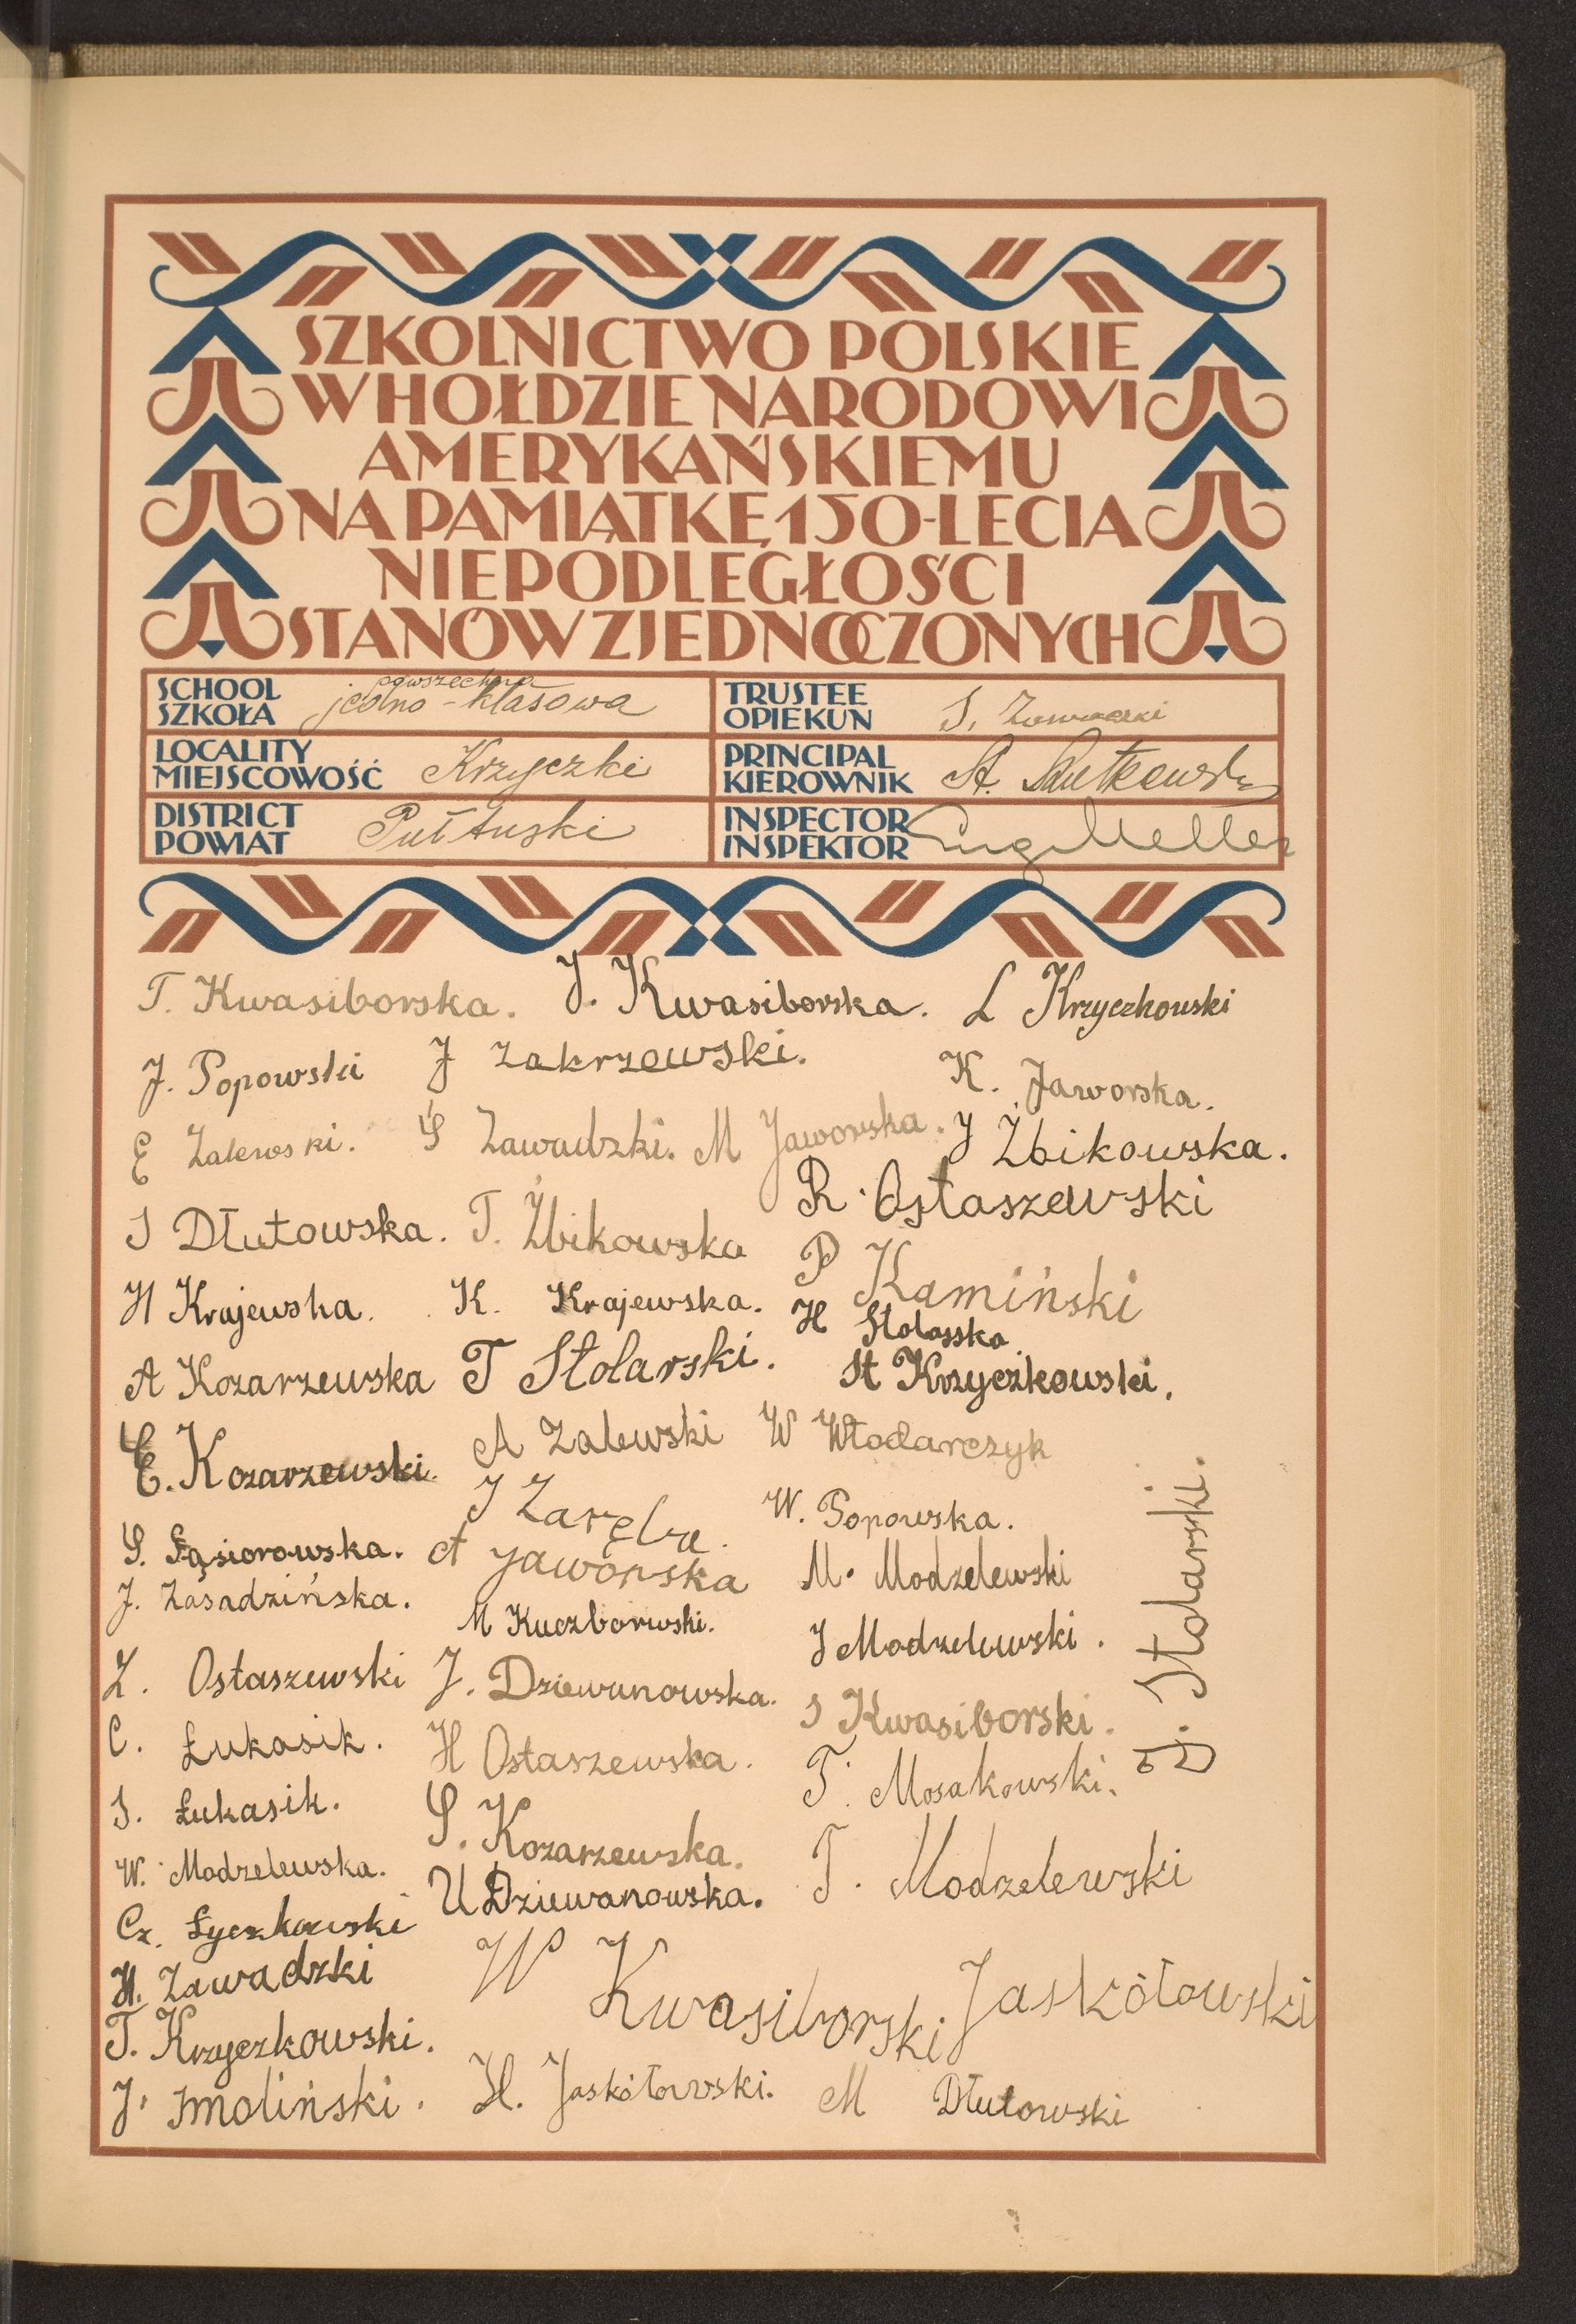 SZKOLNICTWO POLSKIE
W HOŁDZIE NARODOWI
AMERYKAŃSKIEMU
NA PAMIĄTKĘ 150-LECIA
NIEPODLEGŁOŚCI
STANÓW ZJEDNOCZONYCH
SCHOOL
SZKOŁA
powszechna
jedno-klasowa
TRUSTEE
OPIEKUN
LOCALITY
MIEJSCOWOŚĆ
Krzyczki
PRINCIPAL
KIEROWNIK
St.
DISTRICT
POWIAT
Pułtuski
INSPECTOR
INSPEKTOR
T. Kwasiborska. J. Kwasiborska. L Krzyczkowski
J. Popowski J Zakrzewski. K. Jaworska.
E Zalewski. Ś Zawadzki. M Jaworska. J Żbikowska.
R. Ostaszewski
S Dłutowska. T. Żbikowska
P Kamiński
H Krajewska. K. Krajewska.
H Stolasska
A Kozarzewska T Stolarski. St Krzyczkowski.
E. Kozarzewski. A Zalewski W Włodarczyk
J Zaręba. W. Popowska.
S. Gąsiorowska. A Jaworska M. Modzelewski
J. Zasadzińska. M Kuczborwski.
J Modzelewski.
J. Stolarski.
Z. Ostaszewski J. Dziewanowska.
S Kwasiborski.
C. Łukasik. H Ostaszewska.
T. Mosakowski.
S. Łukasik. S. Kozarzewska.
W. Modzelewska. U Dziewanowska. T. Modzelewski
Cz. Łyczkowski
H. Zawadzki W Kwasiborski Jaskółowski
T. Krzyczkowski.
J. Smoliński. H. Jaskółowski. M Dłutowski